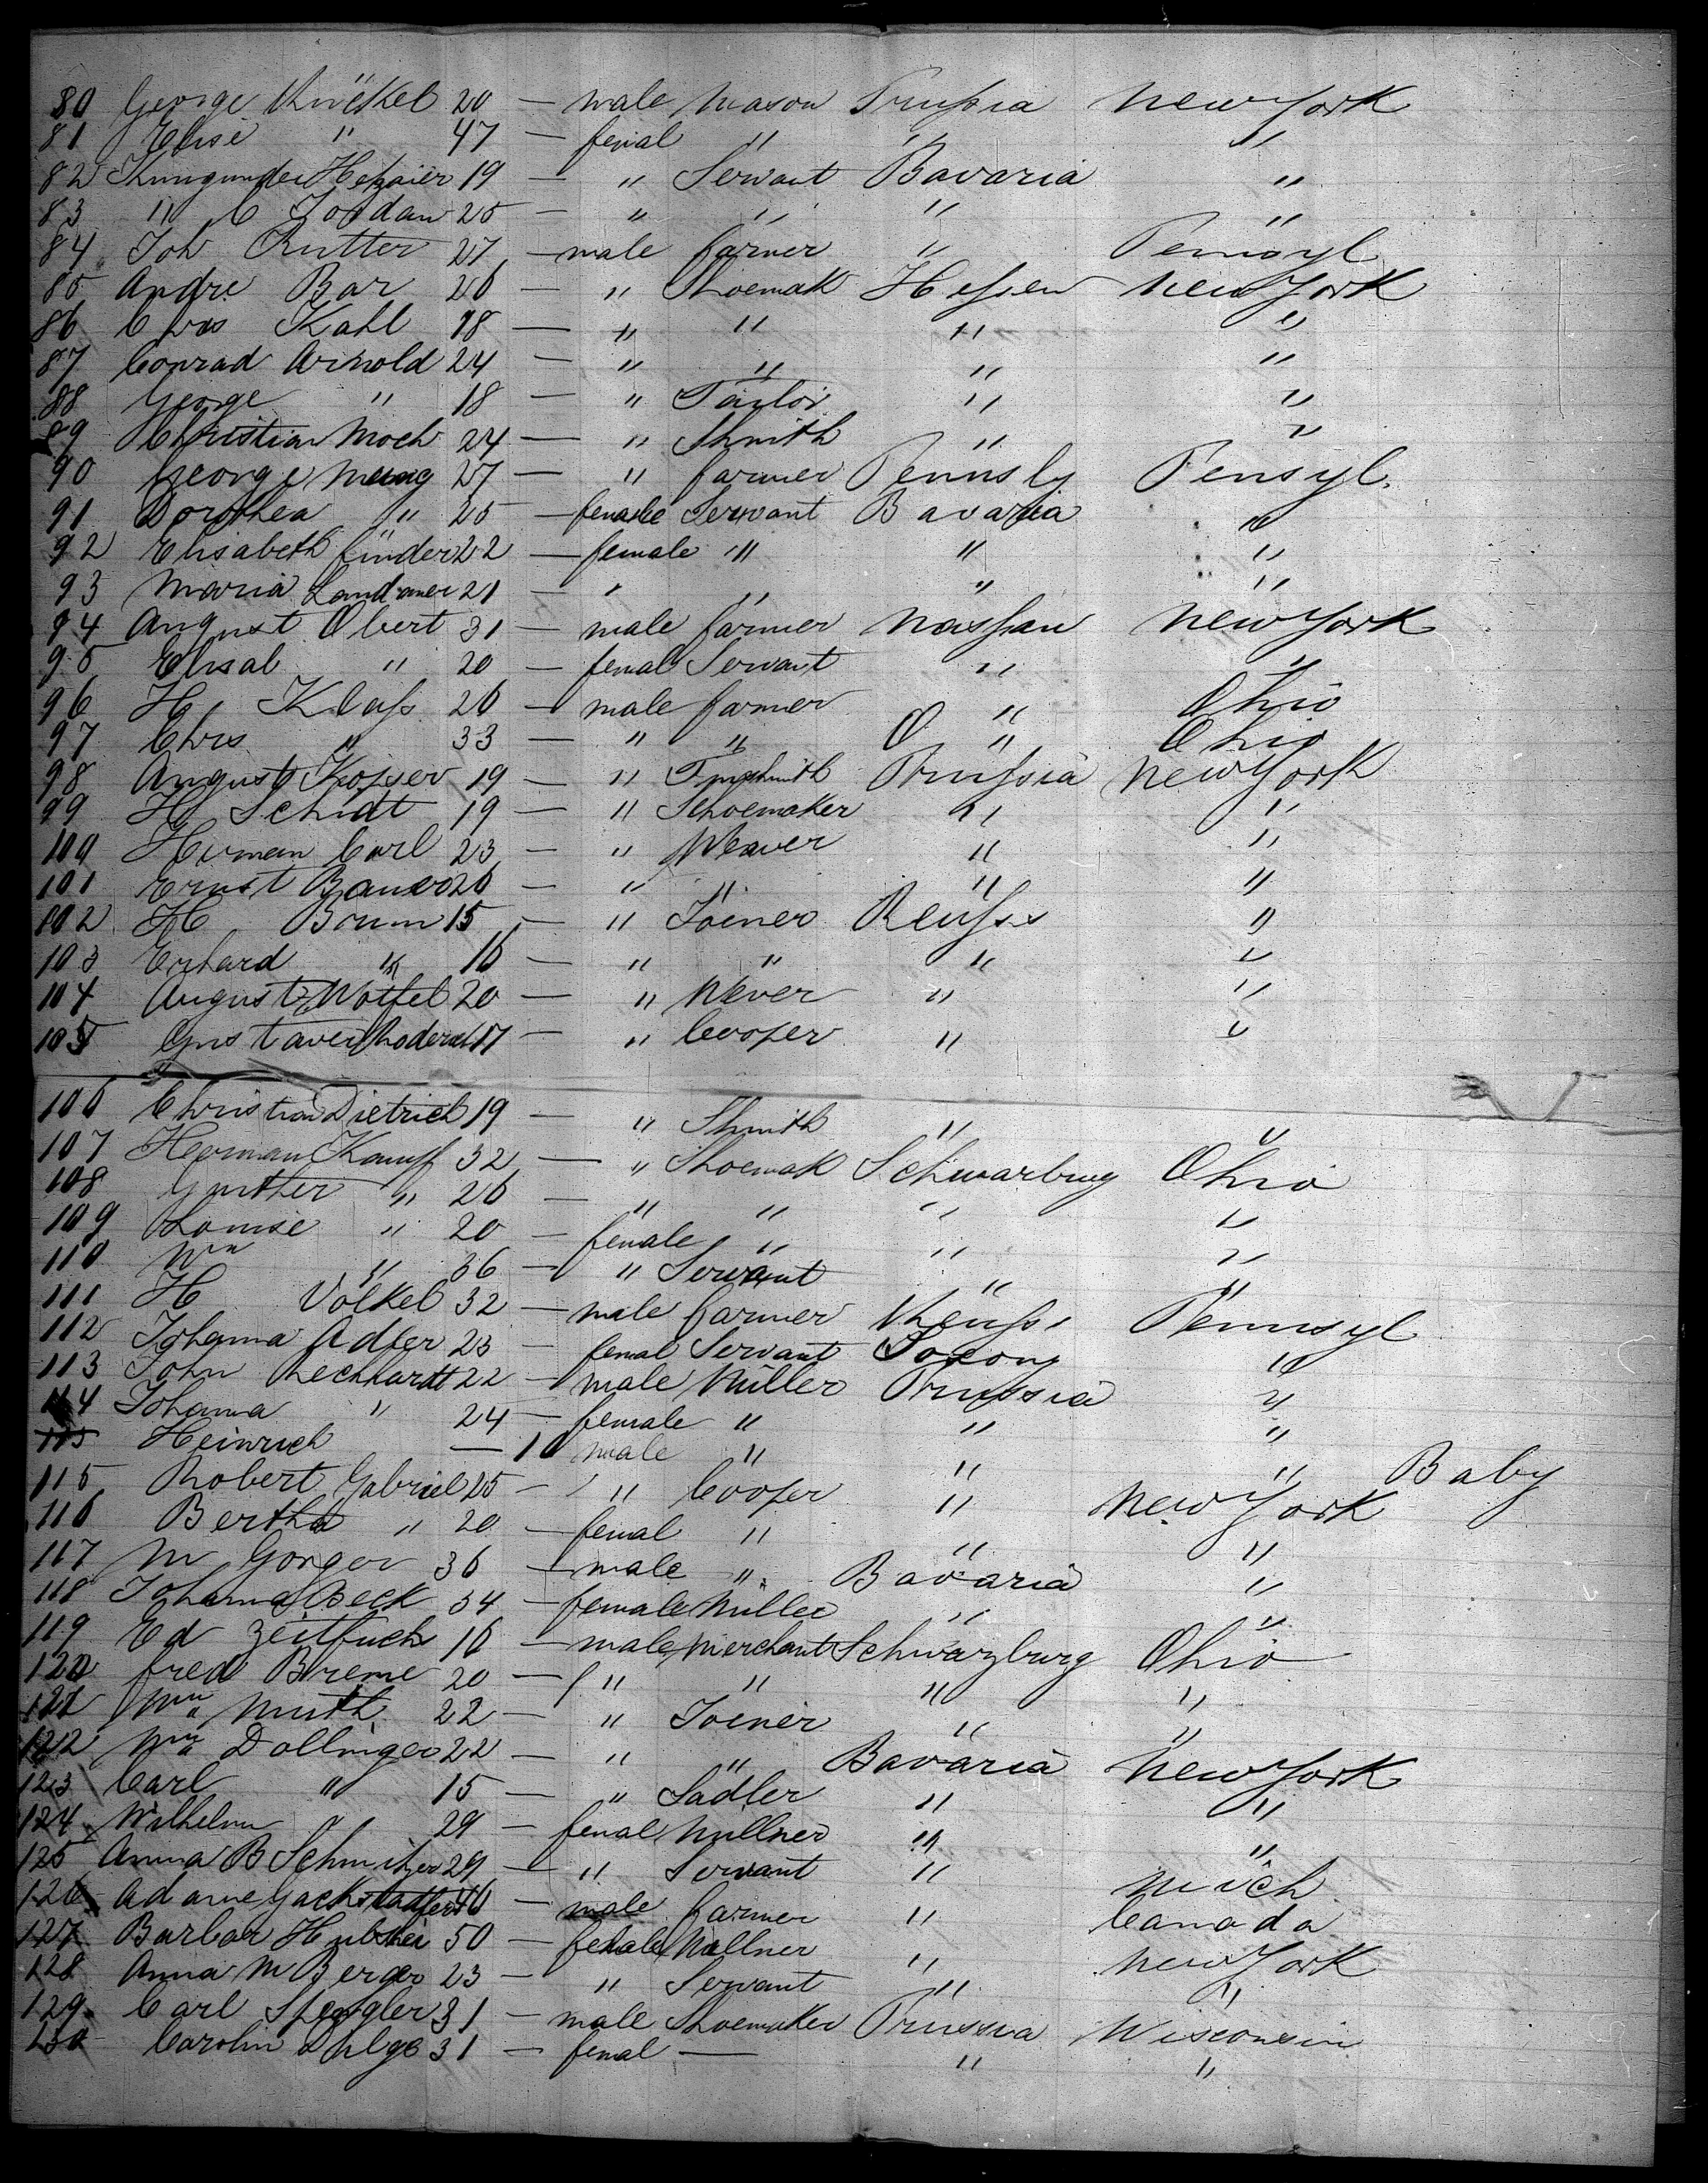 80 George Knöckel 20 — male Mason Prussia New York
81 Elise " 47 — femal " " "
82 Kunigunder 19 — " Servant Bavaria "
83 " C Jordan 25 — " " " "
84 Joh Rutter 27 — male farmer " Pennsyl
85 Andre Bar 26 — " Shoemak Hessen New York
86 Chrs Kahl 18 — " " " "
87 Conrad Arnold 24 — " " " "
88 George " 18 — " Tailor " "
89 Christian Moch 24 — " Shmith " "
90 George Meung 27 — " farmer Pennsly Pensyl.
91 Dorothea " 25 — female Servant Bavaria "
92 Elisabeth Linder 22 — female " " "
93 Maria Landmer 21 — " " " "
94 August Obert 31 — male farmer Nassau New York
95 Elisab " 20 — femal Servant " "
96 H Klass 26 — male farmer " Ohio
97 Chrs " 33 — " " " Ohio
98 August Kopser 19 — " Prussia New York
99 H Schidt 19 — " Schoemaker " "
100 Herman Carl 23 — " Weaver " "
101 Ernst Bauer 26 — " " " "
102 H Brum 15 — " Joiner Reuss "
103 Erhard " 16 — " " " "
104 August Wottel 20 — " Wever " "
105 Gustave 17 — " Cooper " "
106 Christian Dietrich 19 — " Shmith " "
107 Herman Kampf 32 — " Shoemak Schwarburg Ohio
108 Gunther " 26 — " " " "
109 Louise " 20 — female " " "
110 Wm " 36 — " Servant " "
111 H Völkel 32 — male farmer Reuss Pennsyl
112 Johanna Adler 23 — femal Servant Saxony "
113 John Reckhardt 22 — male Müller Prussia "
114 Johanna " 24 — female " " "
115 Heinrich — 10 male " " " Baby
115 Robert Gabriel 25 — " Cooper " New York
116 Bertha " 20 — femal " " "
117 M Gorger 36 — male " Bavaria "
118 Johanna Beck 34 — female Müller " "
119 Ed Zeitfuchs 16 — male Merchant Schwarzburg Ohio
120 fred Breme 20 — " " " "
121 Wm Muth 22 — " Joiner " "
122 Wm Dollinger 22 — " " Bavaria New York
123 Carl " 15 — " Sadler " "
124 Wilhelm " 29 — femal Millner " "
125 Anna B Schmitzer 29 — " Servant " Mich
126 Adam — male farmer " Canada
127 Barbar 50 — female Millner " New York
128 Anna M Berger 23 — " Servant " "
129 Carl Spengler 31 — male Shoemaker Prussia Wisconsin
130 Carolin 31 — femal — " "